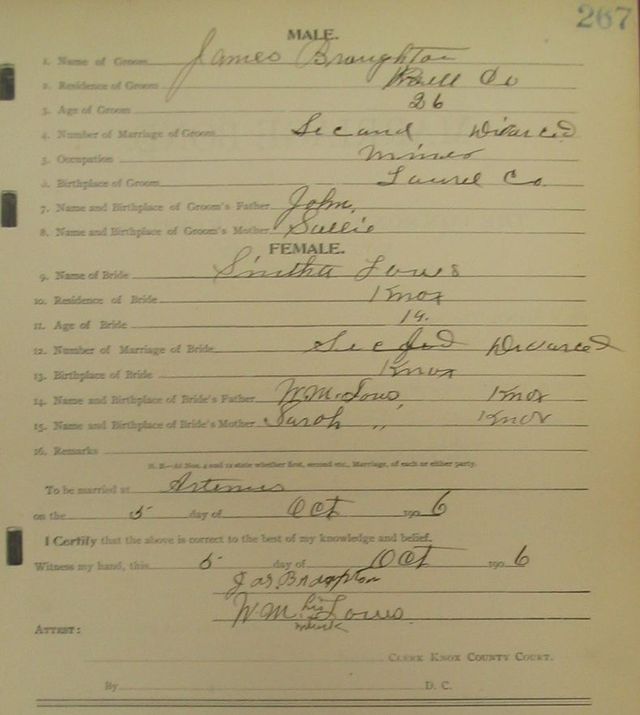 267
MALE.
1. Name of Groom James Broughton
2. Residence of Groom Bell Co
3. Age of Groom 26
4. Number of Marriage of Groom Second Divorced
5. Occupation Miner
6. Birthplace of Groom Laurel Co.
7. Name and Birthplace of Groom's Father John.
8. Name and Birthplace of Groom's Mother Sallie
FEMALE.
9. Name of Bride Sintha
10. Residence of Bride Knox
11. Age of Bride 19.
12. Number of Marriage of Bride Divorced
13. Birthplace of Bride Knox
14. Name and Birthplace of Bride's Father W.M. Knox
15. Name and Birthplace of Bride's Mother Sarah " Knox
16. Remarks
N. B.—At Nos. 4 and 12 state whether first, second etc., Marriage, of each or either party.
To be married at Artemus
on the 5 day of Oct 190 6
I Certify that the above is correct to the best of my knowledge and belief.
Witness my hand, this 5 day of Oct 190 6
Jas. 
W.M. his mark
ATTEST:
CLERK KNOX COUNTY COURT.
By D. C.